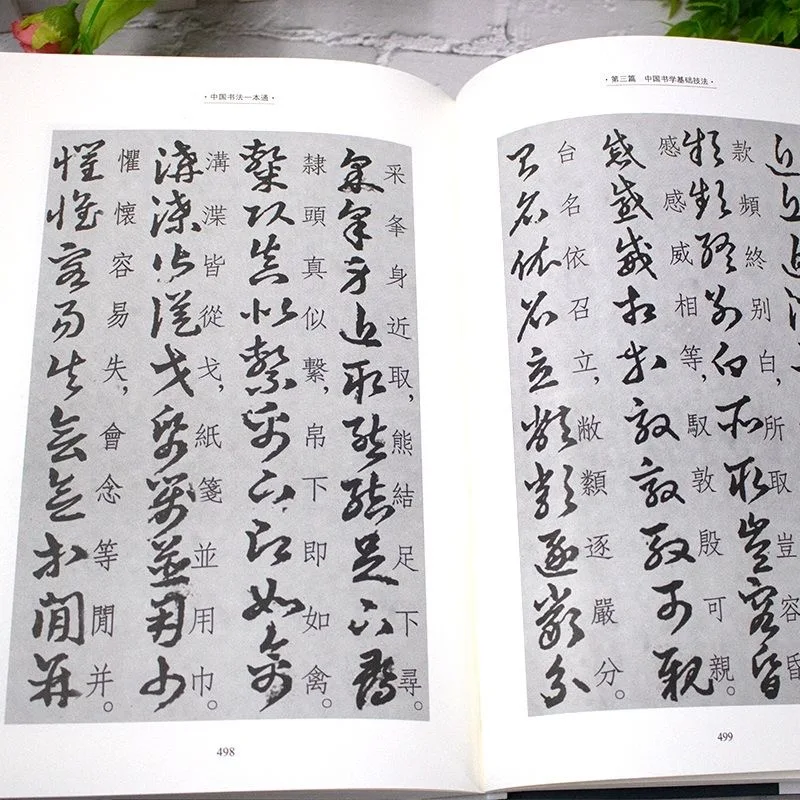 ·中国书法一本通·
采夆身近取，熊結足下尋。
隸頭真似繫，帛下即如禽。
溝渫皆從戈，紙箋並用巾。
懼懷容易失，會念等閒并。
498
·第三篇 中国书学基础技法·
款頻終别白，所取豈容昏
感感威相等，馭敦殷可親。
台名依召立，敝纇逐嚴分。
499